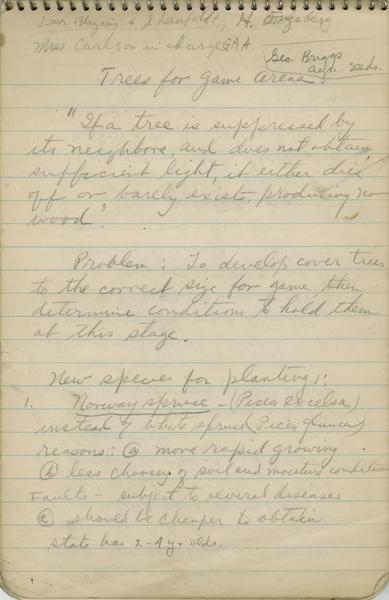 Law. Blazing & Shanfeldt, H. Engsberg
Miss Carlson in charge G.A.A.
Geo. Briggs
Agr. Seeds.
Trees for game areas
"If a tree is suppressed by
its neighbors and does not obtain
sufficient light, it either dies
off or barely exists, producing no
wood".
Problem: To develop cover trees
to the correct size for game then
determine conditions to hold them
at this stage.
New species for planting:
1. Norway spruce - (Picea excelsa)
instead of white spruce Picea
reasons: (a) more rapid growing
(b) less choosy of soil and moisture condition
Faults - subject to several diseases
(c) should be cheaper to obtain
state has 2-4 yr olds.